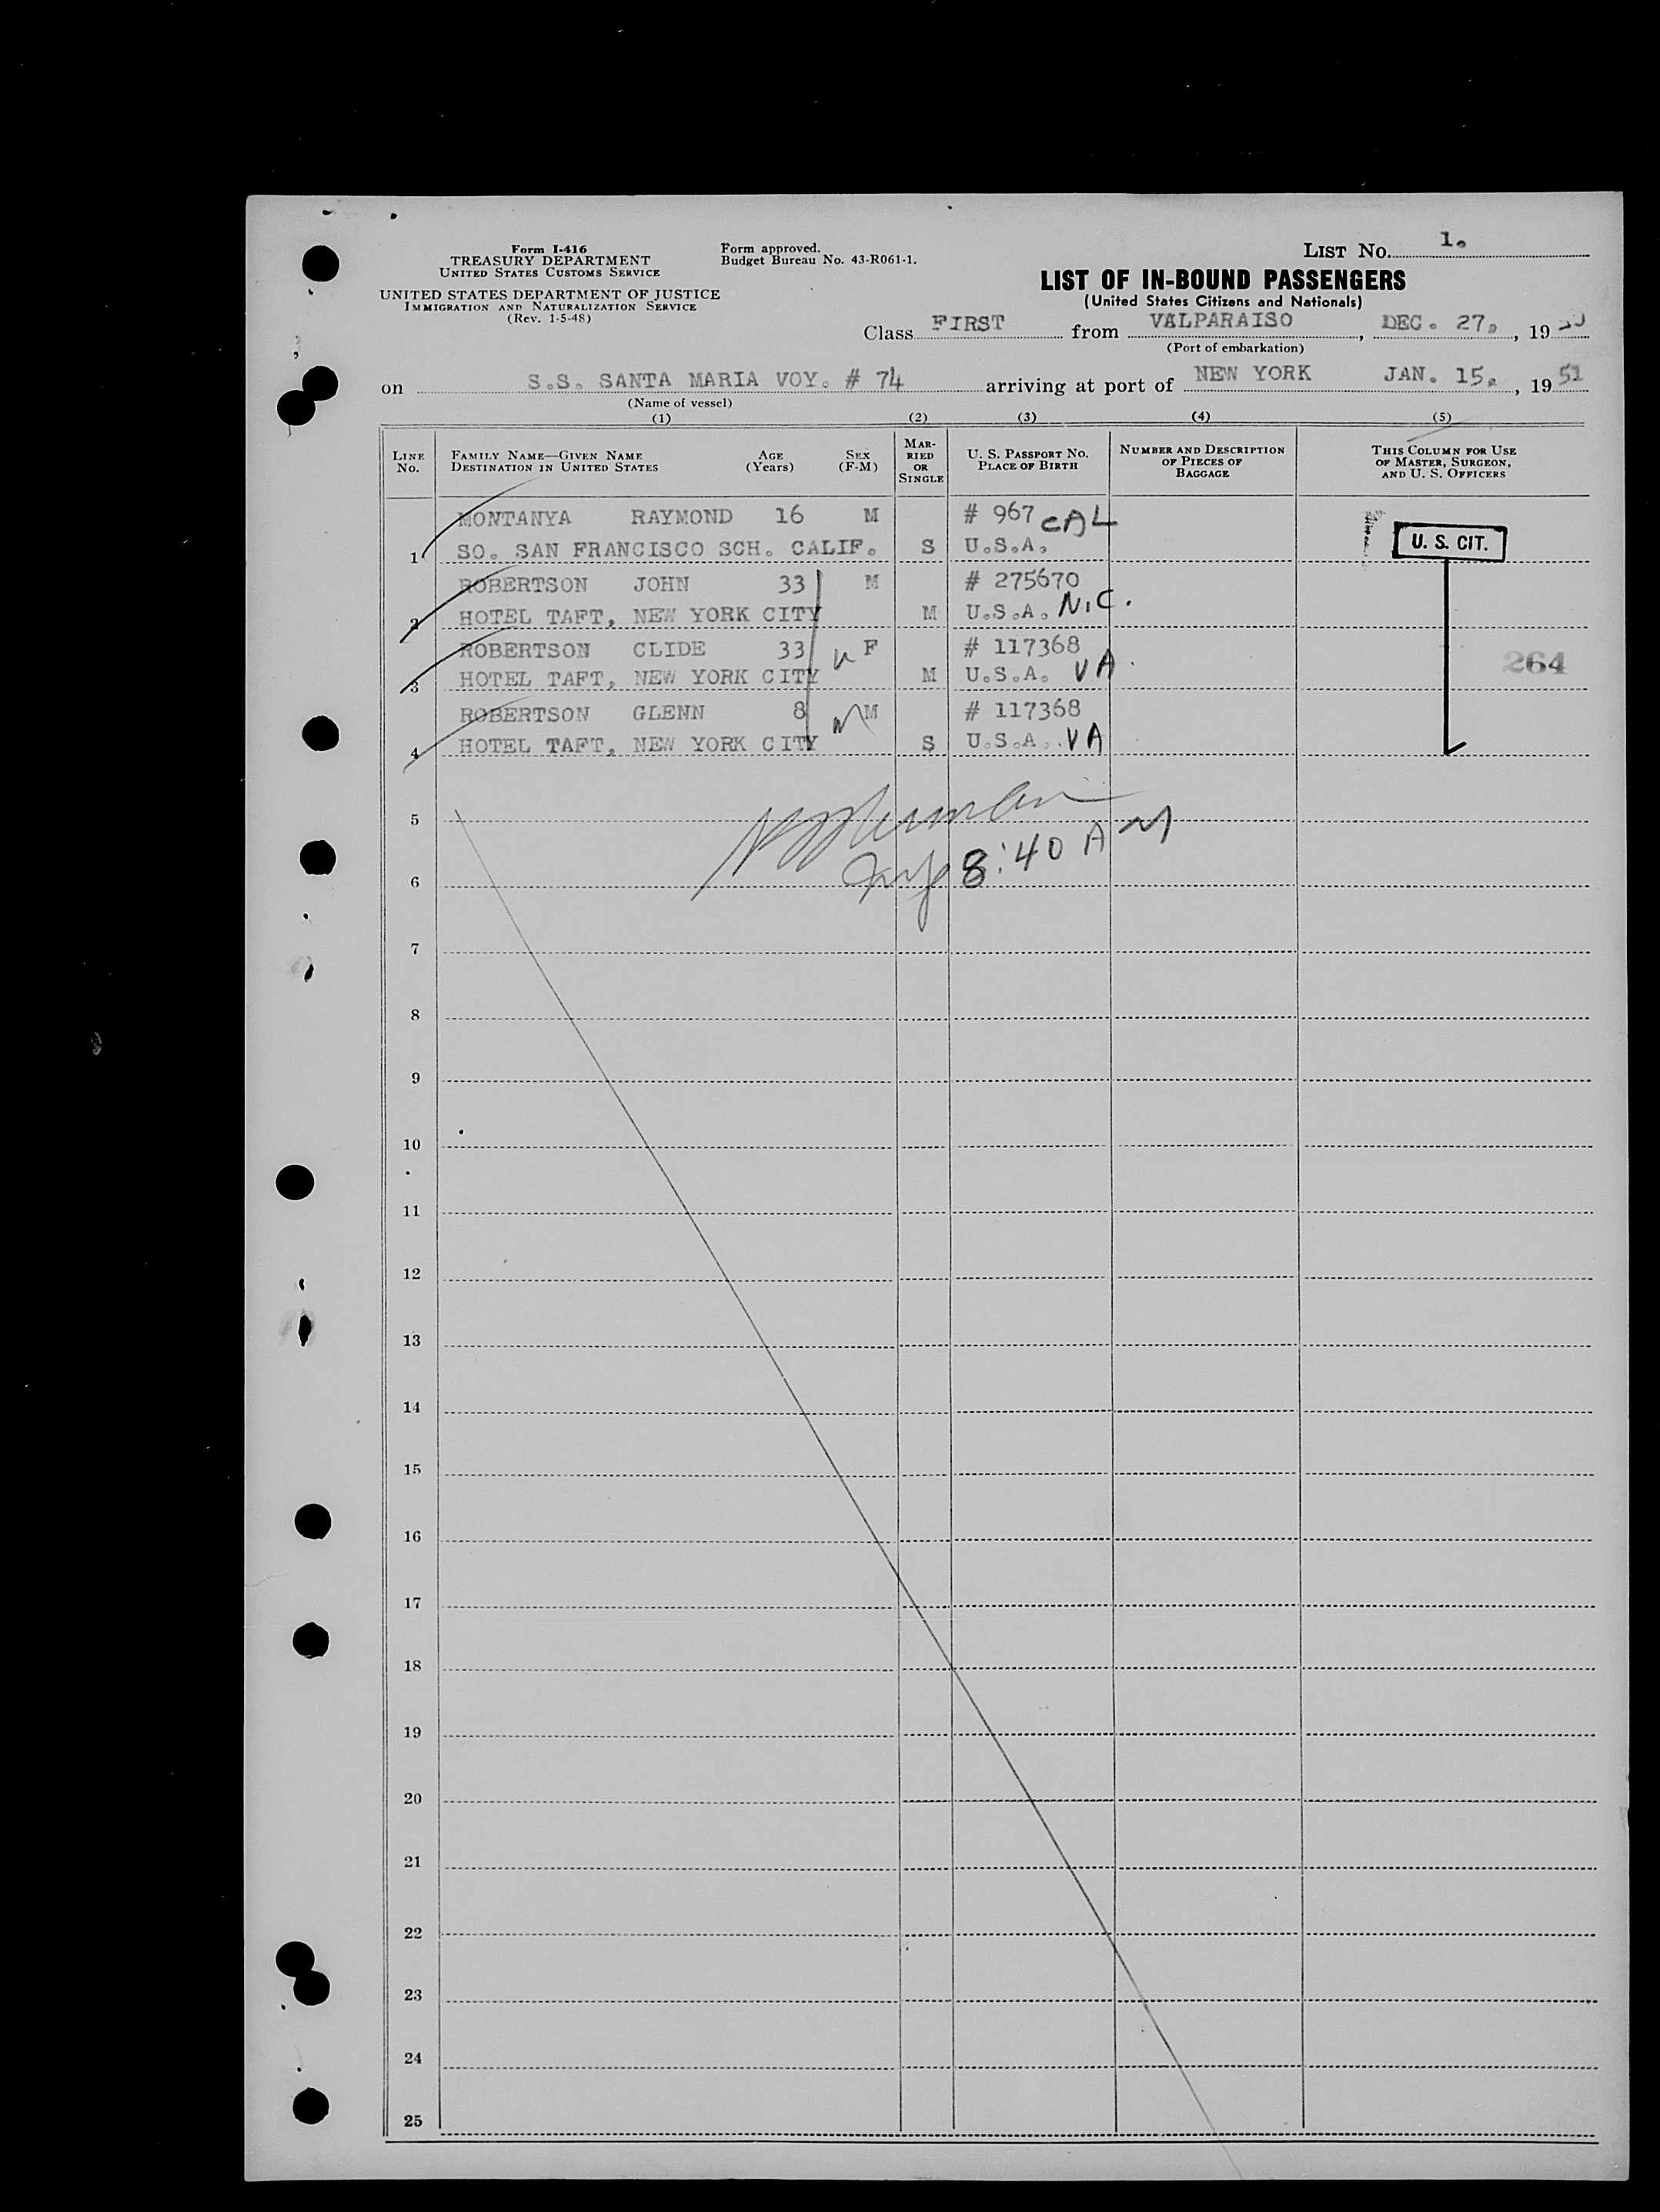 Form I-416
TREASURY DEPARTMENT
UNITED STATES CUSTOMS SERVICE
UNITED STATES DEPARTMENT OF JUSTICE
IMMIGRATION AND NATURALIZATION SERVICE
(Rev. 1-5-48)
Form approved.
Budget Bureau No. 43-R061-1.
LIST No. 1.
LIST OF IN-BOUND PASSENGERS
(United States Citizens and Nationals)
Class FIRST from VALPARAISO, DEC. 27, , 19
(Port of embarkation)
on S.S. SANTA MARIA VOY. # 74 arriving at port of NEW YORK JAN. 15, , 19 51
(Name of vessel)
(1) (2) (3) (4) (5)
LINE No. FAMILY NAME—GIVEN NAME DESTINATION IN UNITED STATES AGE (Years) SEX (F-M) MARRIED OR SINGLE U. S. PASSPORT NO. PLACE OF BIRTH NUMBER AND DESCRIPTION OF PIECES OF BAGGAGE THIS COLUMN FOR USE OF MASTER, SURGEON, AND U. S. OFFICERS
MONTANYA RAYMOND 16 M # 967 CAL
1 SO. SAN FRANCISCO SCH. CALIF. S U.S.A. U. S. CIT.
ROBERTSON JOHN 33 M # 275670
2 HOTEL TAFT, NEW YORK CITY M U.S.A. N.C.
ROBERTSON CLIDE 33 F # 117368
264
3 HOTEL TAFT, NEW YORK CITY M U.S.A. VA.
ROBERTSON GLENN 8 M # 117368
4 HOTEL TAFT, NEW YORK CITY S U.S.A. VA
5
8:40 AM
6
7
8
9
10
11
12
13
14
15
16
17
18
19
20
21
22
23
24
25